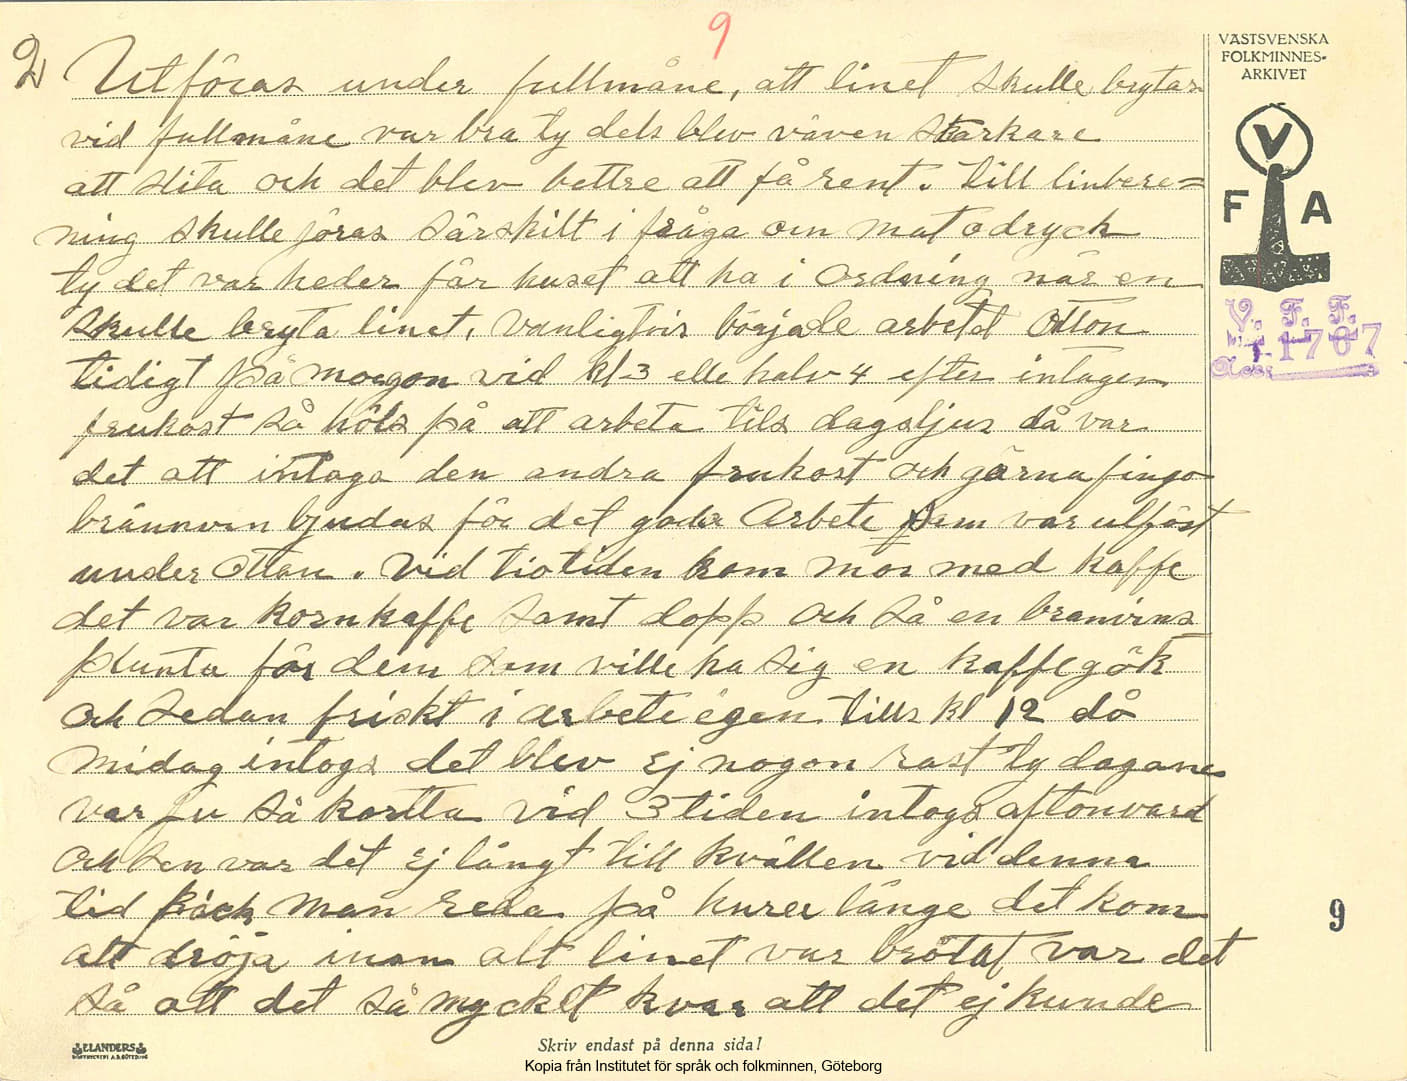 9
2
VÄSTSVENSKA
FOLKMINNES-
ARKIVET
V
F A
V. F. F.
1767
Utföras under fullmåne, att linet skulle brytas
vid fullmåne var bra ty dels blev väven starkare
att slita och det blev bettre att få rent. Till linbere=
ning skulle jöras särskilt i fråga om mat o dryck
ty det var heder för huset att ha i Ordning när en
skulle bryta linet, vanligtvis började arbetet Otton
tidigt på morgon vid kl 3 elle halv 4 efter intagen
frukost så höls på att arbeta tils dagsljus då var
det att intaga den andra frukost och gärna fingo
brännven bjudas för det goda Arbete som var utföst
under Ottan. Vid tiotiden kom mor med kaffe
det var kornkaffe samt dopp och så en branvins
plunta för dem som ville ha sig en kaffegök
och sedan friskt i arbete igen tills kl 12 då
Midag intogs det blev ej nogon rast ty dagane
var ju så kortta vid 3 tiden intogs aftonvard
och sen var det ej långt till kvällen vid denna
tid fick man reda på hurer länge det kom
att dröja inan alt linet var brötat var det
så att det så mycket kvar att det ej kunde
9
ELANDERS
Skriv endast på denna sida!
Kopia från Institutet för språk och folkminnen, Göteborg